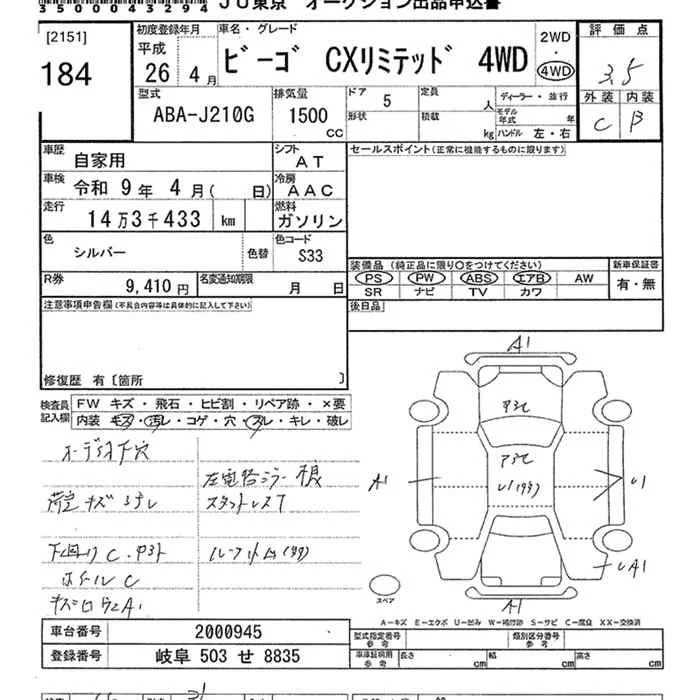 3500043294 JU東京 オークション出品申込書
[2151]
184
初度登録年月
平成
26 4月
車名・グレード
ビーゴ CXリミテッド 4WD
2WD
・
4WD
評価点
3.5
外装 内装
C B
型式
ABA-J210G
排気量
1500
cc
ドア 5
形状
定員 人
積載 kg
ディーラー・並行
モデル年式 年
ハンドル 左・右
車歴 自家用
シフト AT
セールスポイント(正常に機能するものに限ります)
車検 令和 9年 4月( 日)
冷房 AAC
走行 14万3千433 km
燃料 ガソリン
色 シルバー
色替
色コード S33
装備品 (純正品に限り○をつけてください)
新車保証書
PS PW ABS エアB AW
SR ナビ TV カワ
有・無
R券 9,410円
名変通知期限 月 日
後日品
注意事項申告欄(不具合内容等は具体的に記入して下さい)
修復歴 有〔箇所 〕
検査員記入欄
FW キズ・飛石・ヒビ割・リペア跡・×要
内装 キズ・汚レ・コゲ・穴・スレ・キレ・破レ
オーディオ下穴
荷室キズ スレ
スタットレスT
下回りC
ホイールC
A1
A1
A1
A1
スペア
A-キズ E-エクボ U-凹み W-補修跡 S-サビ C-腐食 XX-交換済
車台番号 2000945
登録番号 岐阜 503 せ 8835
型式指定番号
参考
類別区分番号
参考
車庫証明用
参考
長さ cm
幅 cm
高さ cm